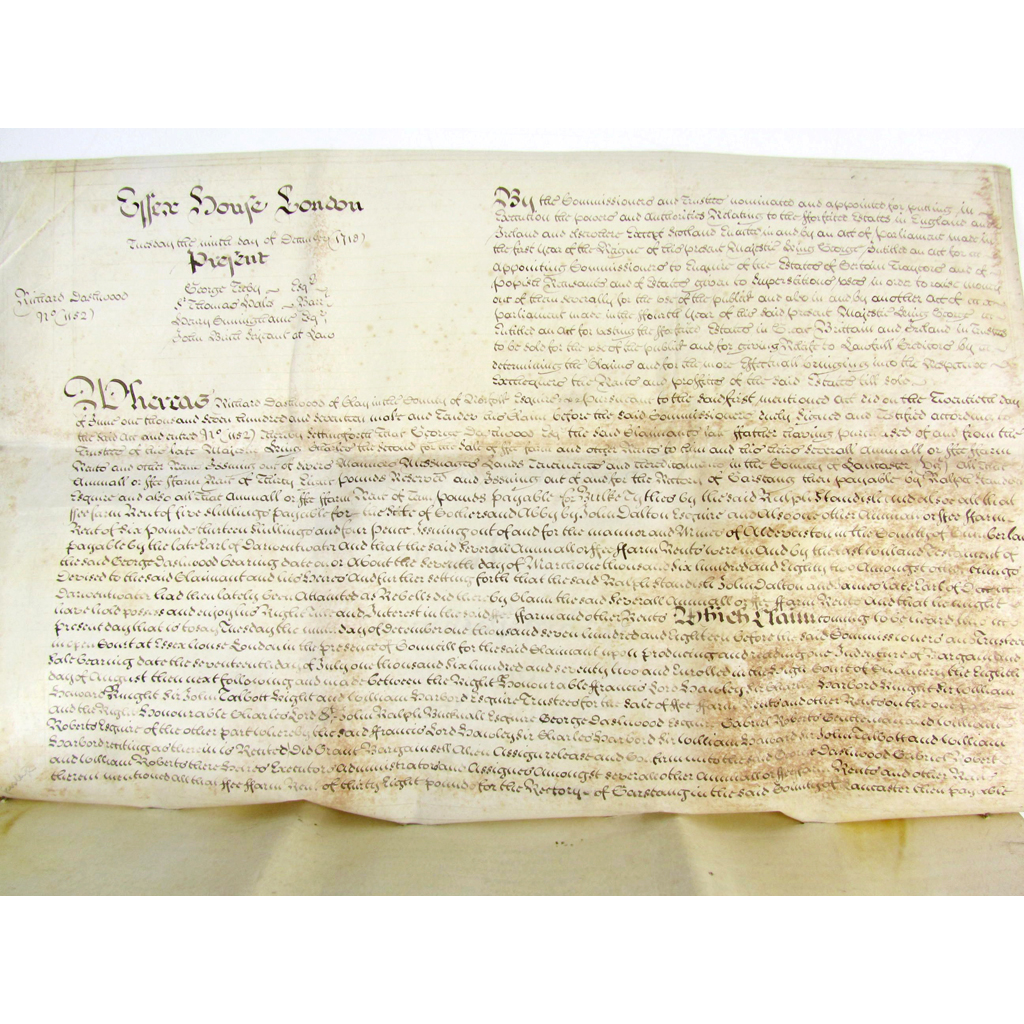 Essex House London
Tuesday the ninth day of December 1718
Present
George Treby Esqr
Sr Thomas Hales Barrt
Henry Cunninghame Esqr
John Birch Serjeant at Law
Richard Dashwood
No (1152)
By the Commissioners and Trustees nominated and appointed for putting in
Execution the powers and Authorities Relating to the fforfeited Estates in England and
Ireland and elsewhere Except Scotland Enacted in and by an Act of Parliament made in
the first year of the Raigne of his present Majestie King George Intitled an Act for
Appointing Commissioners to Enquire of the Estates of Certain Traytors and of
Popish Recusants and of Estates given to Superstitious uses in order to raise money
out of them severally for the use of the publick and also in and by another Act of
parliament made in the ffourth year of his said present Majestie King George
Intitled an Act for vesting the fforfeited Estates in Great Brittain and Ireland in Trustees
to be sold for the use of the publick and for giving Relief to Lawfull Creditors by
determining the Claims and for the more Effectuall bringing into the Respective
Exchequers the Rents and proffits of the said Estates till sold
Whereas Richard Dashwood of Clay in the County of Norfolk Esquire pursuant to the said first mentioned Act did on the Twentieth day
of June one thousand seven hundred and seventeen Make and Tender his Claim before the said Commissioners duly signed and Testified according to
the said Act and entred No (1152) Thereby setting forth That George Dashwood Esq the said Claimants late ffather having purchased of and from the
Trustees of his late Majesty King Charles the second for the sale of ffee ffarm and other Rents to him and his heirs severall Annuall or ffee ffarm
Rents and other Rents Issueing out of divers Mannors Messuages Lands Tenements and Hereditaments in the County of Lancaster (vizt) all that
Annuall or ffee ffarm Rent of Thirty Eight pounds Reserved and Issueing out of and for the Rectory of Garstang then payable by Ralph Standish
Esquire and also all That Annuall or ffee ffarm Rent of Tenn pounds payable for Bulke Tythes by the said Ralph Standish and also all that
ffee farm Rent of five shillings payable for the Scite of Cockersand Abby by John Dalton Esquire and Also one other Annuall or ffee ffarm
Rent of Six pounds thirteen shillings and four pence Issuing out of and for the mannor and Mines of Alderston in the County of Cumberland
payable by the late Earl of Darwentwater And that the said severall Annuall or ffee ffarm Rents were in And by the last will and Testament of
the said George Dashwood bearing date on or About the seventh day of March one thousand six hundred and Eighty two Amongst other things
Devised to the said Claimant and his Heires And further setting forth that the said Ralph Standish John Dalton and James late Earl of
Darwentwater had then lately been Attainted as Rebells did thereby Claim the said severall Annuall or ffee ffarm Rents And that he might
have hold possess and enjoy his Right Title and Interest in the said ffee ffarm and other Rents Which Claim coming to be heard this
present day that is to say Tuesday the ninth day of December one thousand seven hundred and Eighteen before the said Commissioners and Trustees
in open Court at Essex house London in the presence of Councill for the said Claimant upon producing and reading one Indenture of Bargain and
Sale bearing date the seventeenth day of July one thousand six hundred and seventy two and Enrolled in the High Court of Chancery the Eighth
day of August then next following and made between the Right Honourable ffrancis Lord Hawley Sir Charles Harbord Knight Sir William
Haward Knight Sir John Talbott Knight and William Harbord Esquire Trustees for the sale of ffee ffarm Rents and other Rents on the one part
and the Right Honourable Charles Lord St John Ralph Bucknall Esquire George Dashwood Esquire Gabriel Roberts Gentleman and William
Roberts Esquire of the other part whereby the said ffrancis Lord Hawley Sir Charles Harbord Sir William Haward Sir John Talbott and William
Harbord reciting as therein is Recited Did Grant Bargain sell Alien Assign release and Confirm unto the said George Dashwood Gabriel Roberts
and William Roberts there Heires Executors Administrators and Assignes Amongst severall other Annuall or ffee Rents and other Rents
therein mentioned all that ffee ffarm Rent of thirty Eight pounds for the Rectory of Garstang in the said County of Lancaster then payable